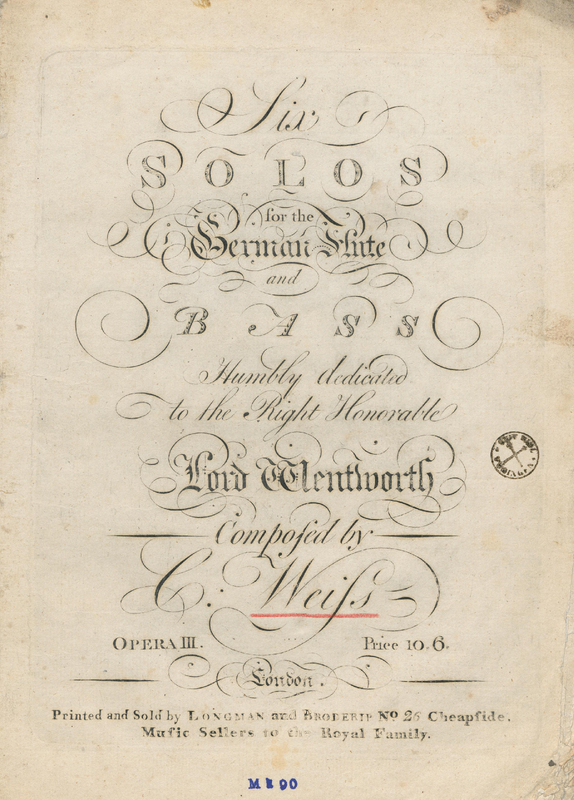 Six
SOLOS
for the
German Flute
and
BASS
Humbly dedicated
to the Right Honorable
Lord Wentworth
Compoſed by
C. Weiſs
OPERA III. Price 10.6.
London.
Printed and Sold by LONGMAN and BRODERIP No 26 Cheapſide.
Muſic Sellers to the Royal Family.
M 90